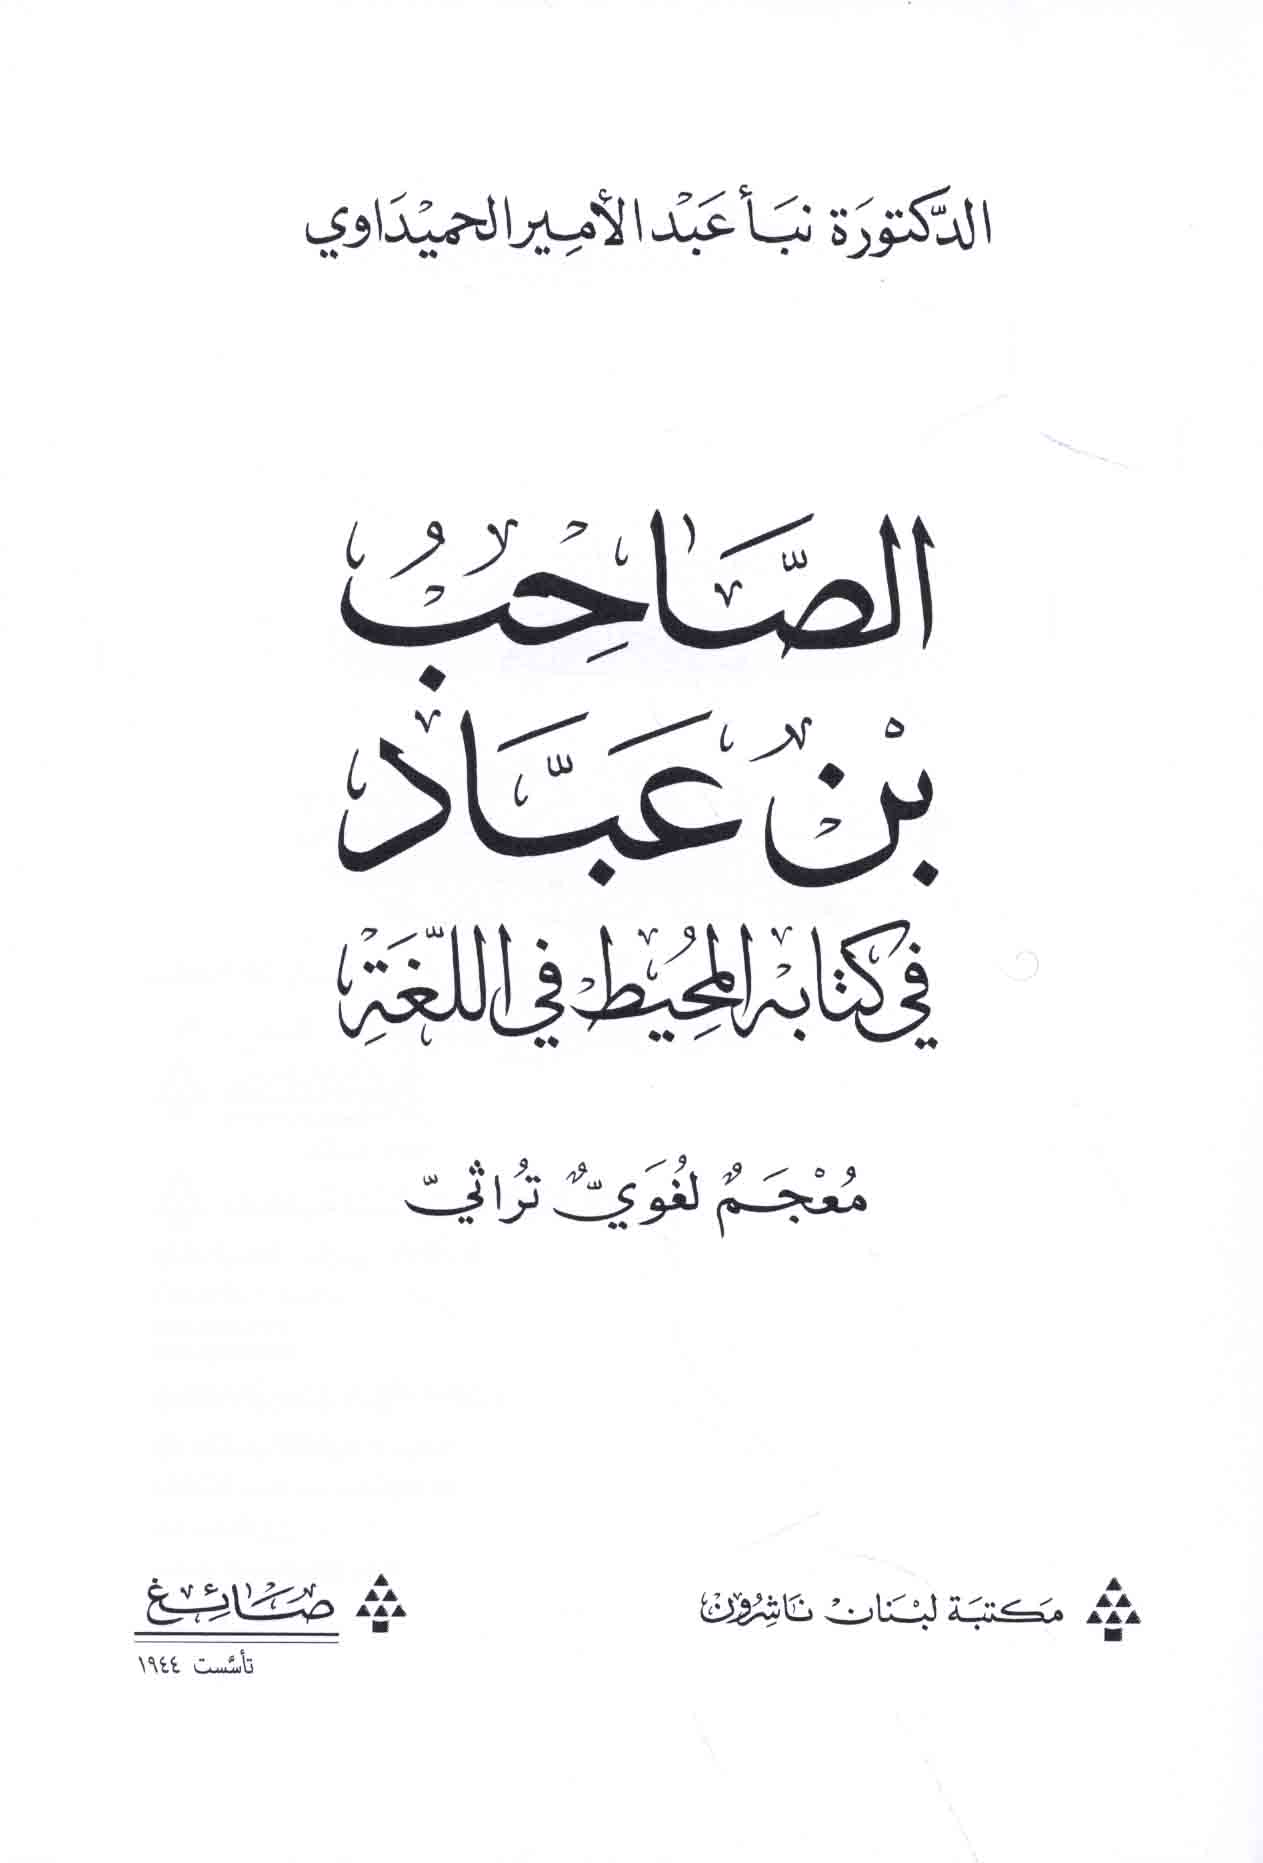 الدّكتورَة نبَأ عَبْد الأمِير الحميْدَاوي
الصَّاحِبُ
بْنُ عَبَّاد
في كتابه المُحِيْط في اللّغَةِ
مُعْجَمٌ لغُوَيٌّ تُراثيّ
مَكتبَة لبْنَان نَاشِرُون
صَائِغ
تأسَّست ١٩٤٤